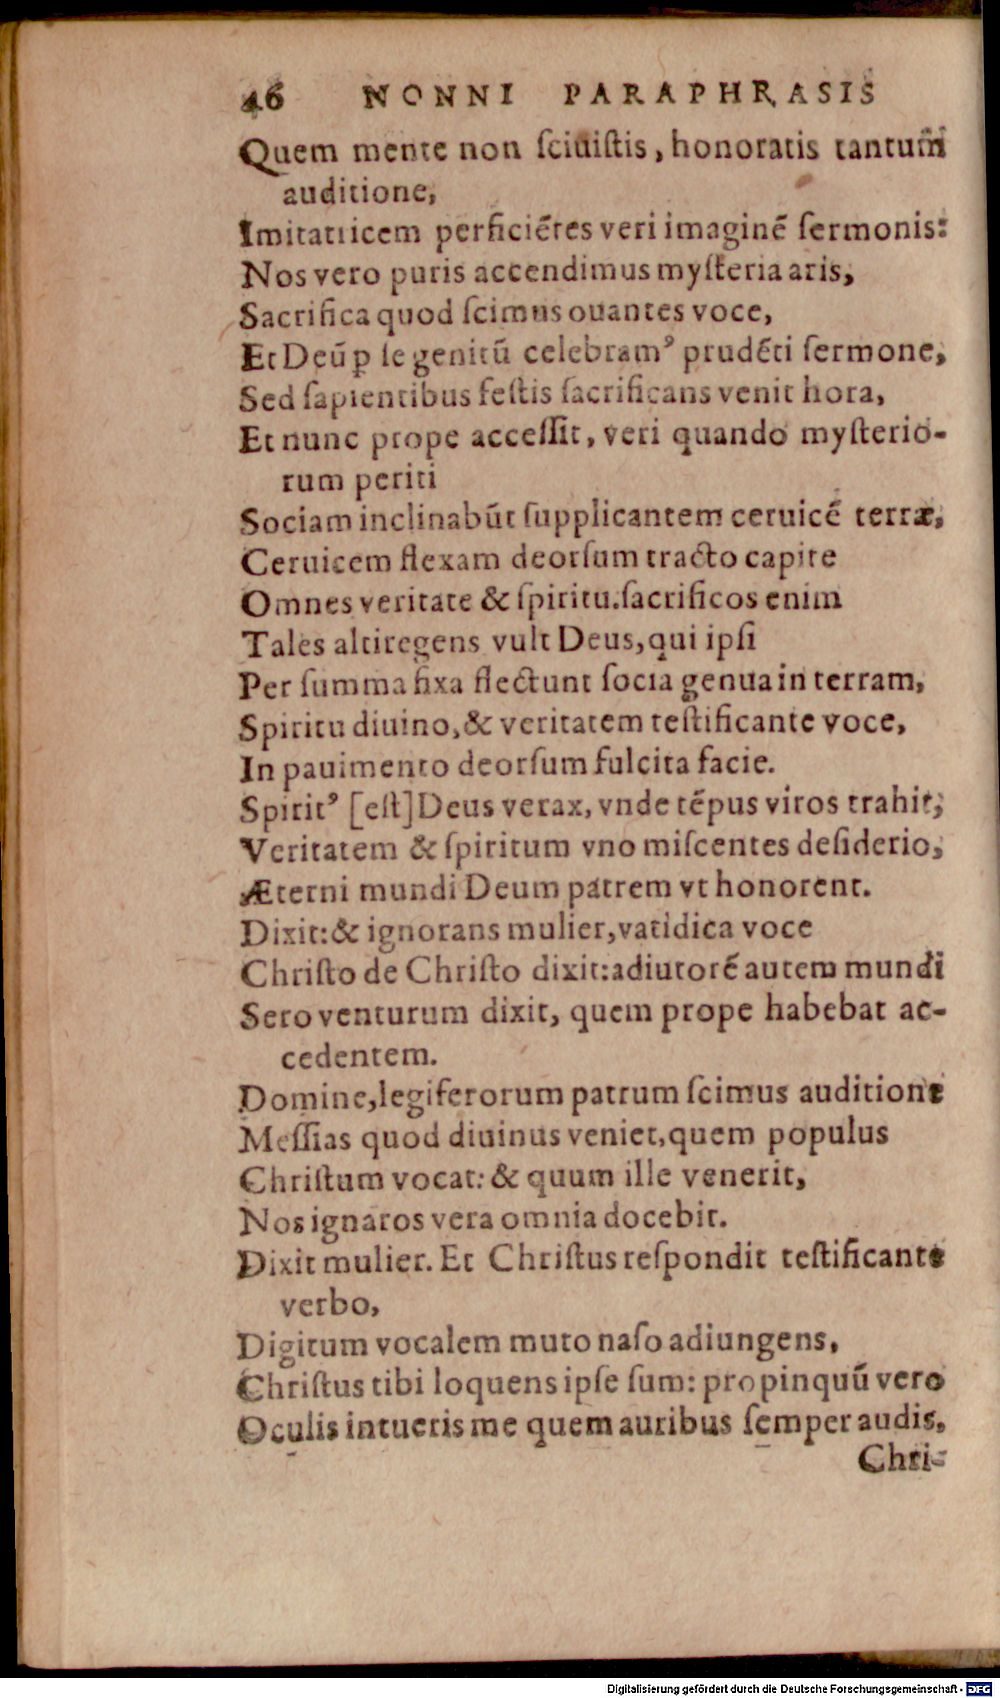 46 NONNI PARAPHRASIS
Quem mente non ſciuiſtis, honoratis tantum
auditione,
Imitatricem perficiẽtes veri imaginẽ ſermonis:
Nos vero puris accendimus myſteria aris,
Sacrifica quod ſcimus ouantes voce,
Et Deũ ꝑ ſe genitũ celebramꝰ prudẽti ſermone,
Sed ſapientibus feſtis ſacrificans venit hora,
Et nunc prope acceſſit, veri quando myſterio-
rum periti
Sociam inclinabũt ſupplicantem ceruicẽ terræ,
Ceruicem flexam deorſum tracto capite
Omnes veritate & ſpiritu. ſacrificos enim
Tales altiregens vult Deus, qui ipſi
Per ſumma fixa flectunt ſocia genua in terram,
Spiritu diuino, & veritatem teſtificante voce,
In pauimento deorſum fulcita facie.
Spiritꝰ [eſt] Deus verax, vnde tẽpus viros trahit,
Veritatem & ſpiritum vno miſcentes deſiderio,
Æterni mundi Deum patrem vt honorent.
Dixit: & ignorans mulier, vatidica voce
Chriſto de Chriſto dixit: adiutorẽ autem mundi
Sero venturum dixit, quem prope habebat ac-
cedentem.
Domine, legiferorum patrum ſcimus auditione
Meſſias quod diuinus veniet, quem populus
Chriſtum vocat: & quum ille venerit,
Nos ignaros vera omnia docebit.
Dixit mulier. Et Chriſtus reſpondit teſtificante
verbo,
Digitum vocalem muto naſo adiungens,
Chriſtus tibi loquens ipſe ſum: propinquũ vero
Oculis intueris me quem auribus ſemper audis,
Chri-
Digitalisierung gefördert durch die Deutsche Forschungsgemeinschaft - DFG